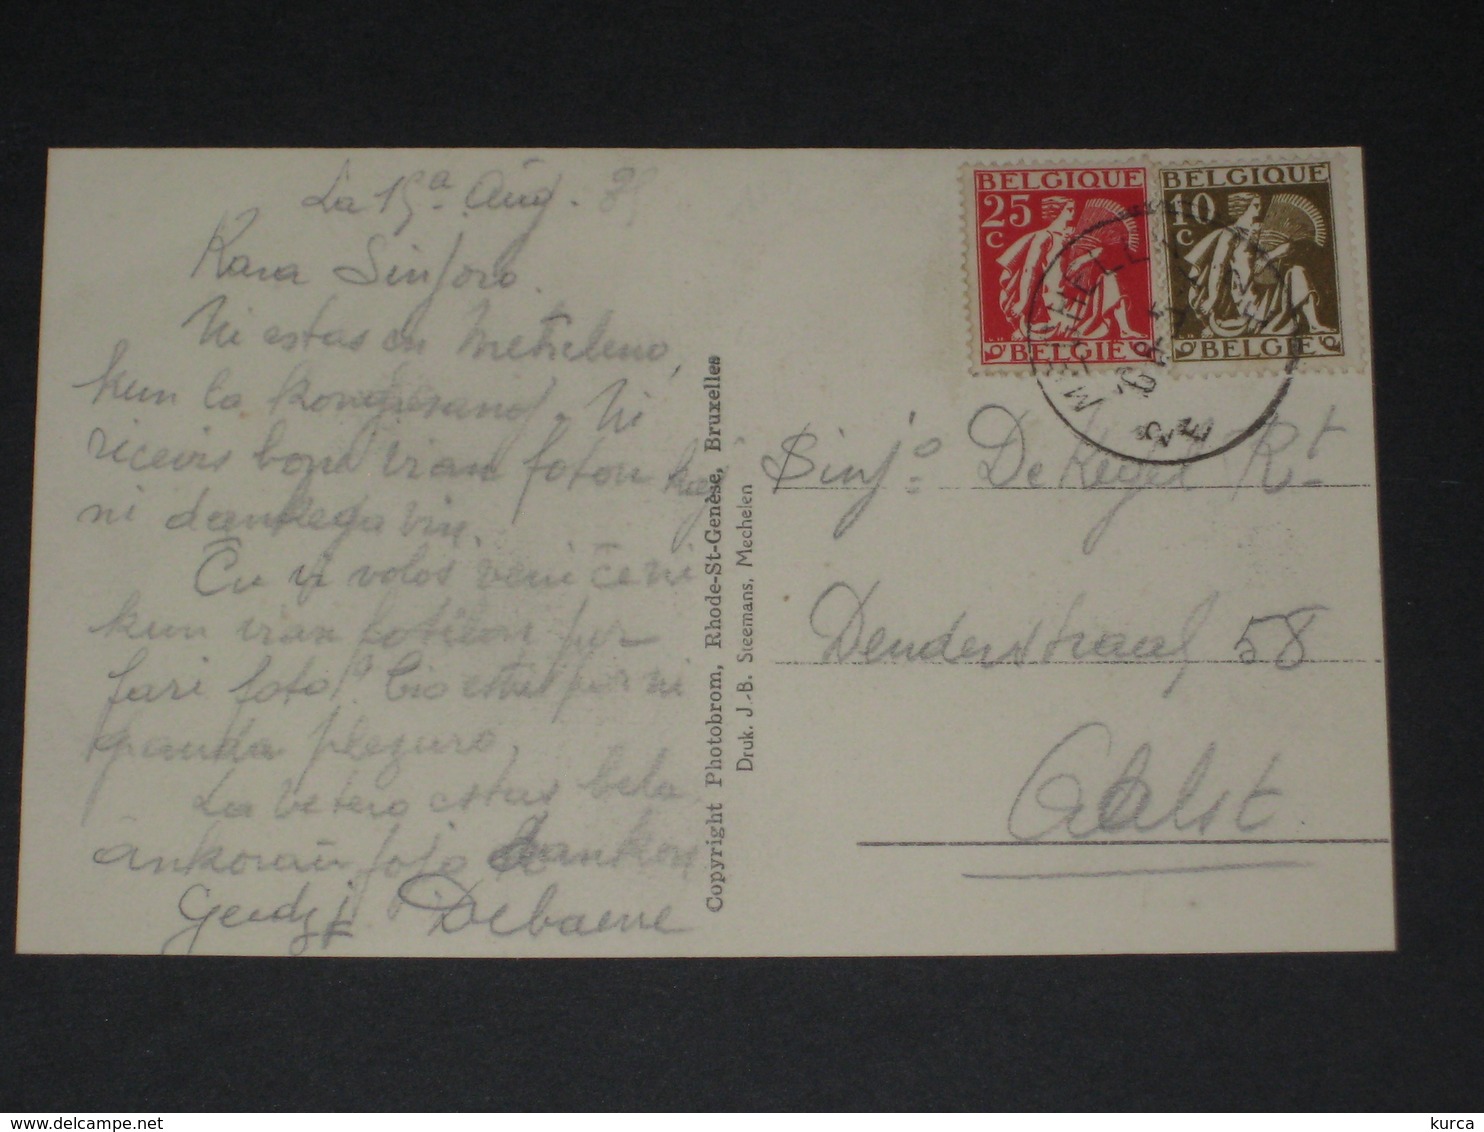 La 15ª Aŭg. 35
Kara Sinjoro.
Ni estas en Meĥeleno,
kun la
Ni
ricevis bone vian foton kaj
ni dankega vin.
Ĉu vi volos veni ĉe ni
kun vian per
fari foto? Ĝio estus por ni
granda plezuro.
La vetero estas bela
ankoraŭ foje dankon
Debaene
Copyright Photobrom, Rhode-St-Genèse, Bruxelles
Druk. J.-B. Steemans, Mechelen
BELGIQUE
25
C
BELGIE
BELGIQUE
10
C
BELGIE
MECHELEN
Sinjº De Kegel Rt
Denderstraat 58
Aalst
kurca